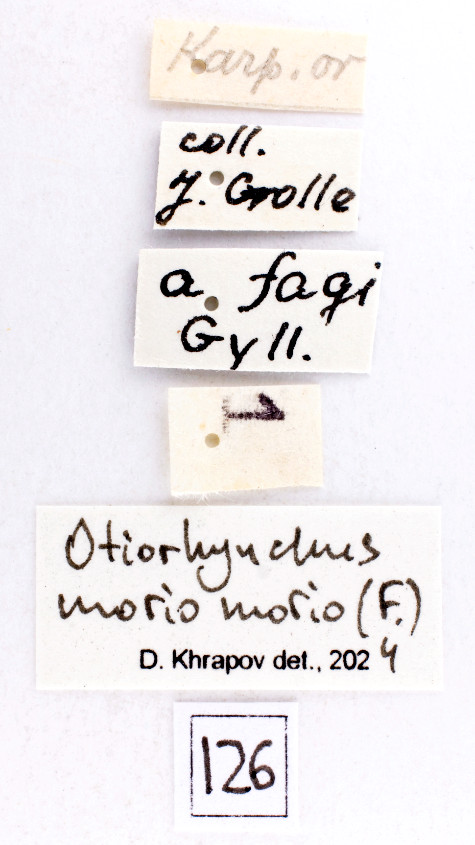 Karp. or
coll.
J. Grolle
a. fagi
Gyll.
1
Otiorhynchus
morio morio (F.)
D. Khrapov det., 2024
126